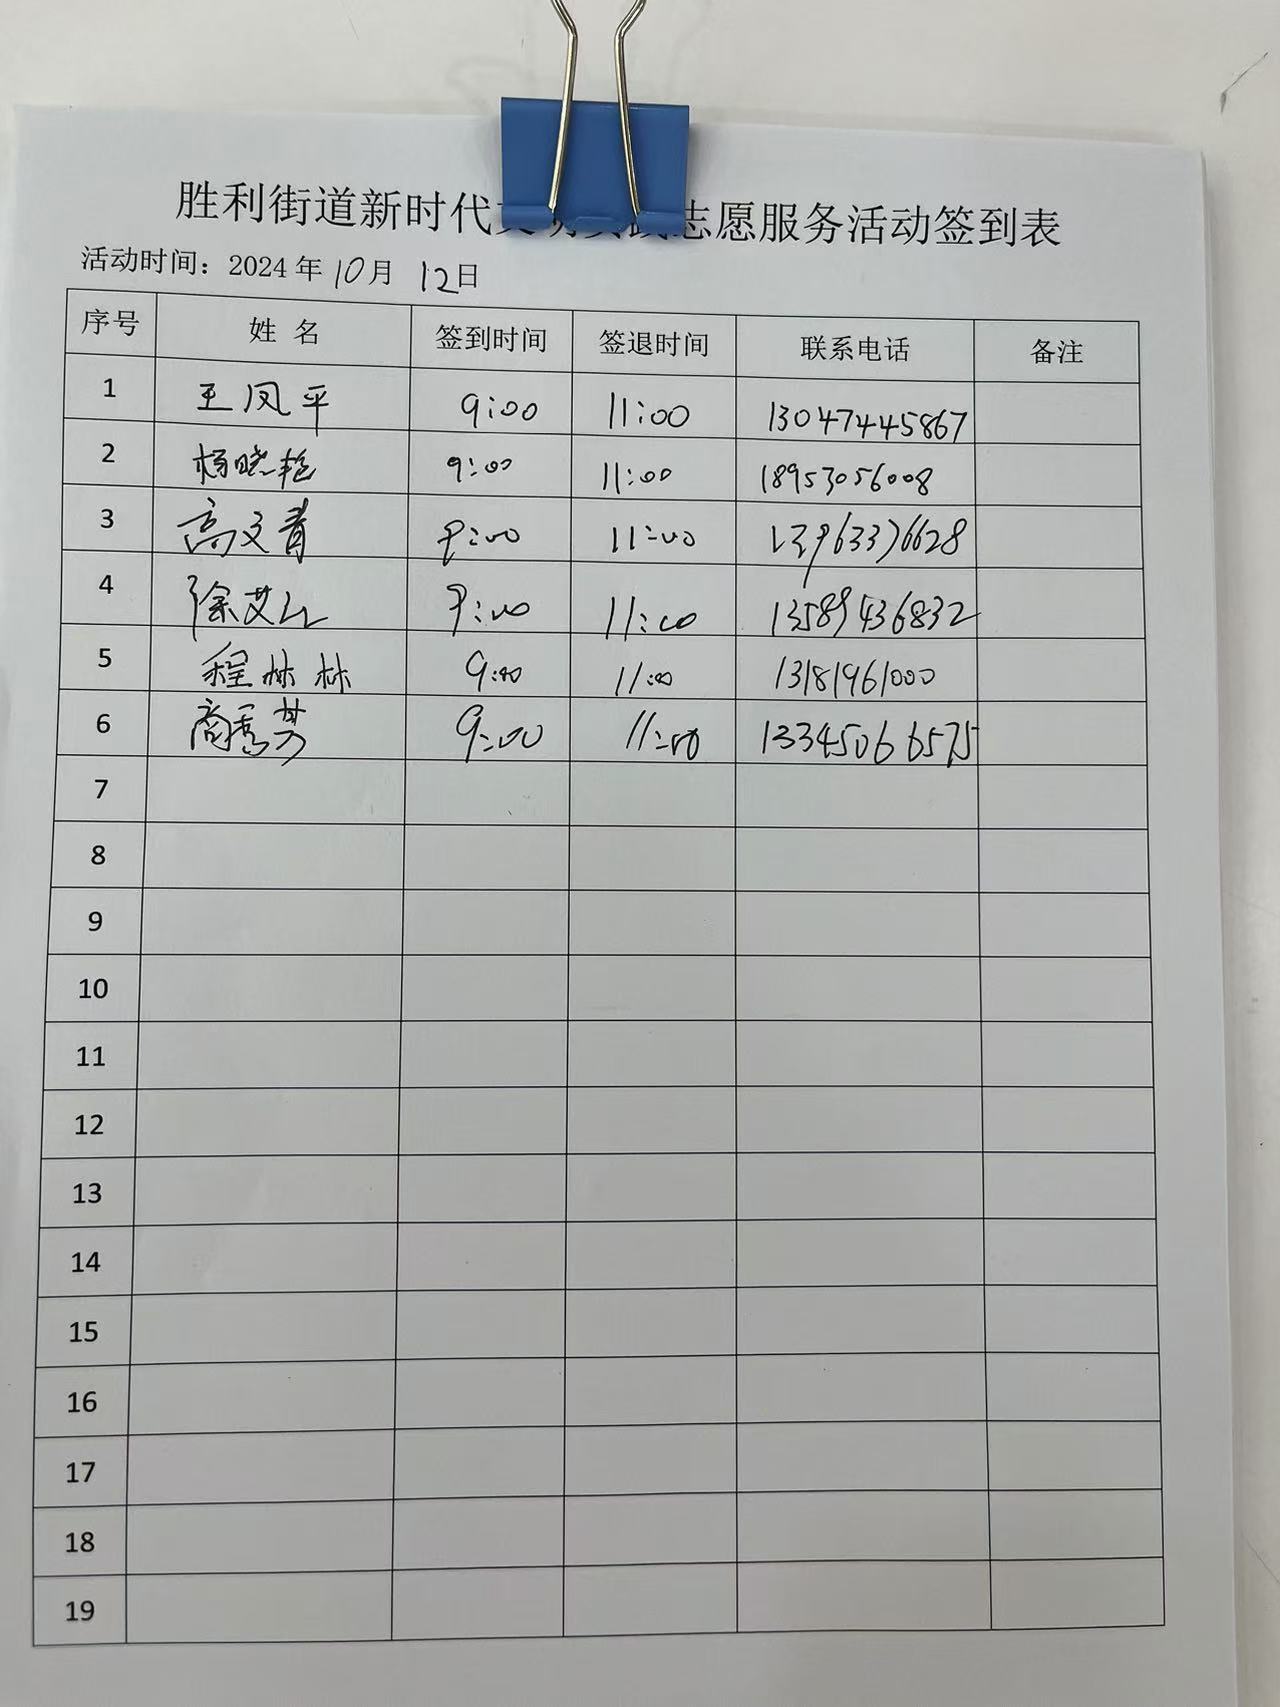 胜利街道新时代文明实践志愿服务活动签到表
活动时间：2024年10月12日
序号 姓 名 签到时间 签退时间 联系电话 备注
1 王凤平 9:00 11:00 13047445867
2 杨晓艳 9:00 11:00 18953056008
3 高文青 9:00 11:00 13963376628
4 徐艾 9:00 11:00 13589436832
5 程林林 9:00 11:00 13181961000
6 商秀芳 9:00 11:00 13345066575
7
8
9
10
11
12
13
14
15
16
17
18
19